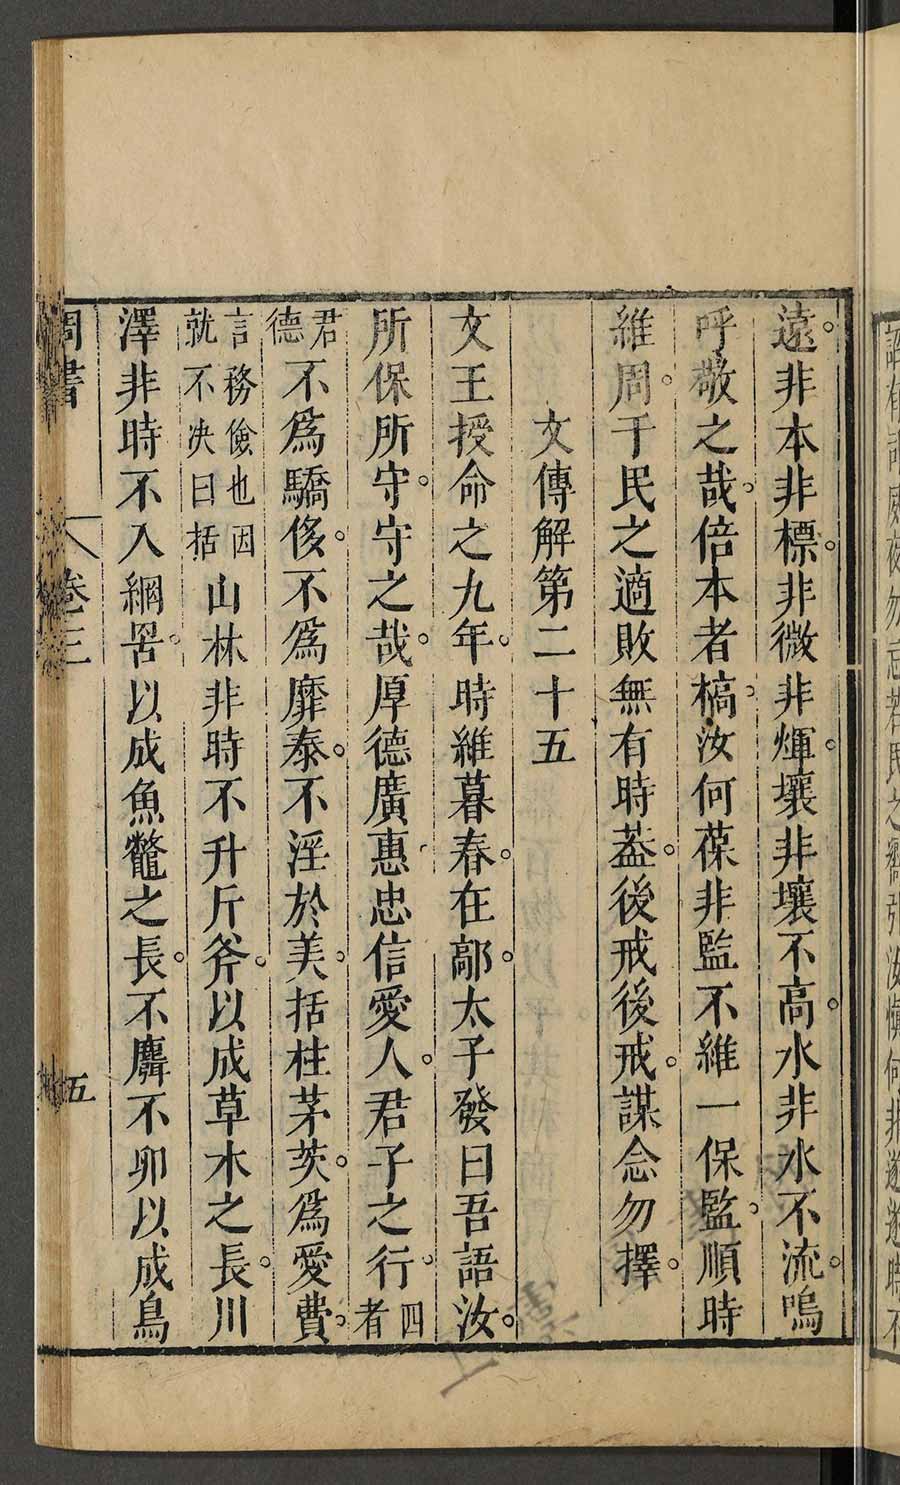 遠。非本非標。非微非煇。壤非壤不高。水非水不流。嗚
呼敬之哉。倍本者槁。汝何葆非監。不維一保監。順時
維周。于民之適敗無有時葢。後戒後戒。謀念勿擇。
文傳解第二十五
文王授命之九年。時維暮春。在鄗。太子發曰吾語汝。
所保所守。守之哉。厚德廣惠。忠信愛人。君子之行。四者
君德不爲驕侈。不爲靡泰。不淫於美。括柱茅茨。爲愛費。
言務儉也因就不决曰括山林非時不升斤斧。以成草木之長。川
澤非時不入網罟。以成魚鼈之長。不麛不卵以成鳥
周書 卷三 五